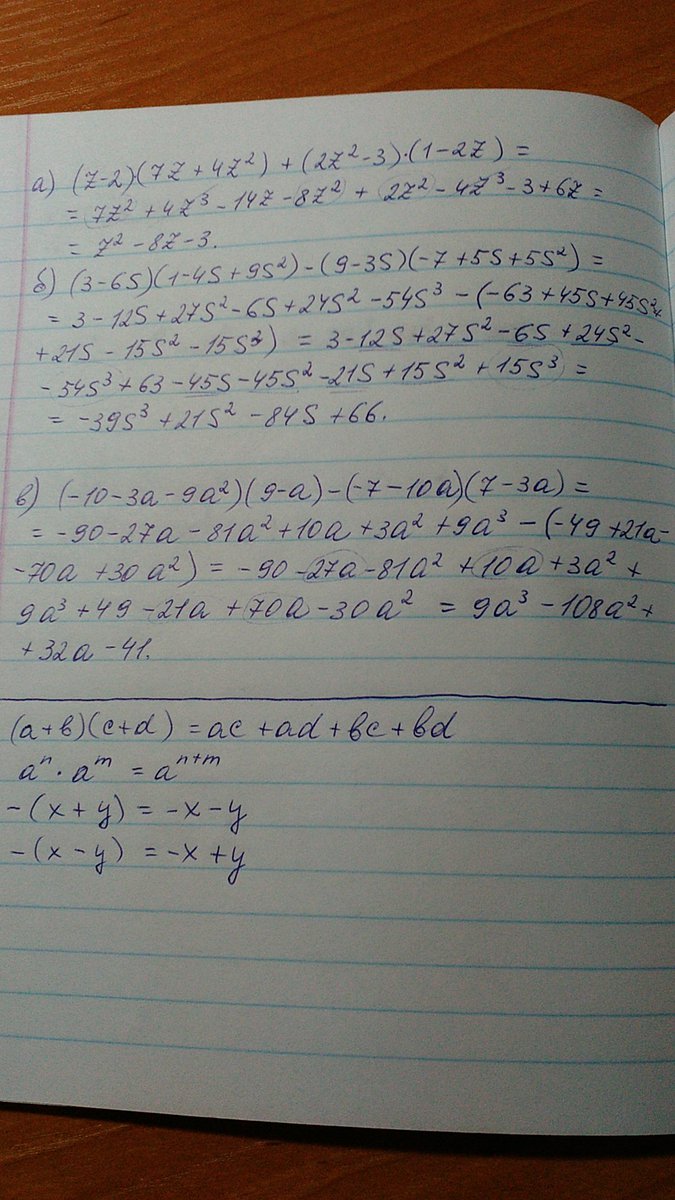 а) (z-2)·(7z+4z²)+(2z²-3)·(1-2z)=
= 7z²+4z³-14z-8z²+2z²-4z³-3+6z=
= z²-8z-3.
б) (3-6s)(1-4s+9s²)-(9-3s)(-7+5s+5s²)=
= 3-12s+27s²-6s+24s²-54s³-(-63+45s+45s²+
+21s-15s²-15s³) = 3-12s+27s²-6s+24s²-
-54s³+63-45s-45s²-21s+15s²+15s³=
= -39s³+21s²-84s+66.
в) (-10-3a-9a²)(9-a)-(-7-10a)(7-3a)=
= -90-27a-81a²+10a+3a²+9a³-(-49+21a-
-70a+30a²)= -90-27a-81a²+10a+3a²+
9a³+49-21a+70a-30a² = 9a³-108a²+
+32a-41.
(a+b)(c+d)=ac+ad+bc+bd
aⁿ·aᵐ=aⁿ⁺ᵐ
-(x+y)=-x-y
-(x-y)=-x+y